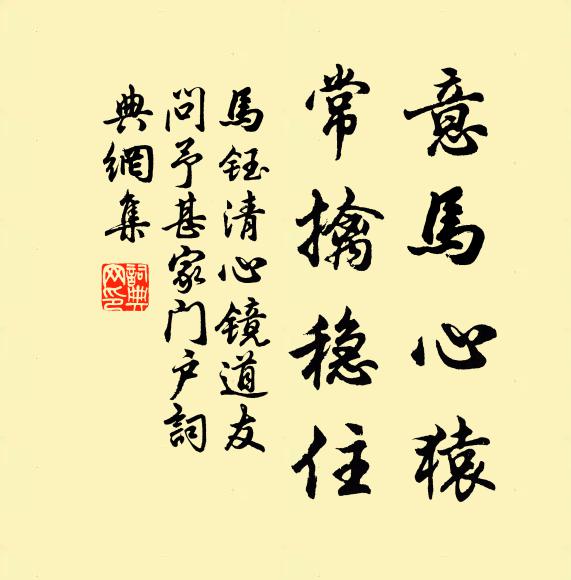 意馬心猿
常擒穩住
馬鈺清心鏡道友
問予甚家門户詞
典網集
詞典网印